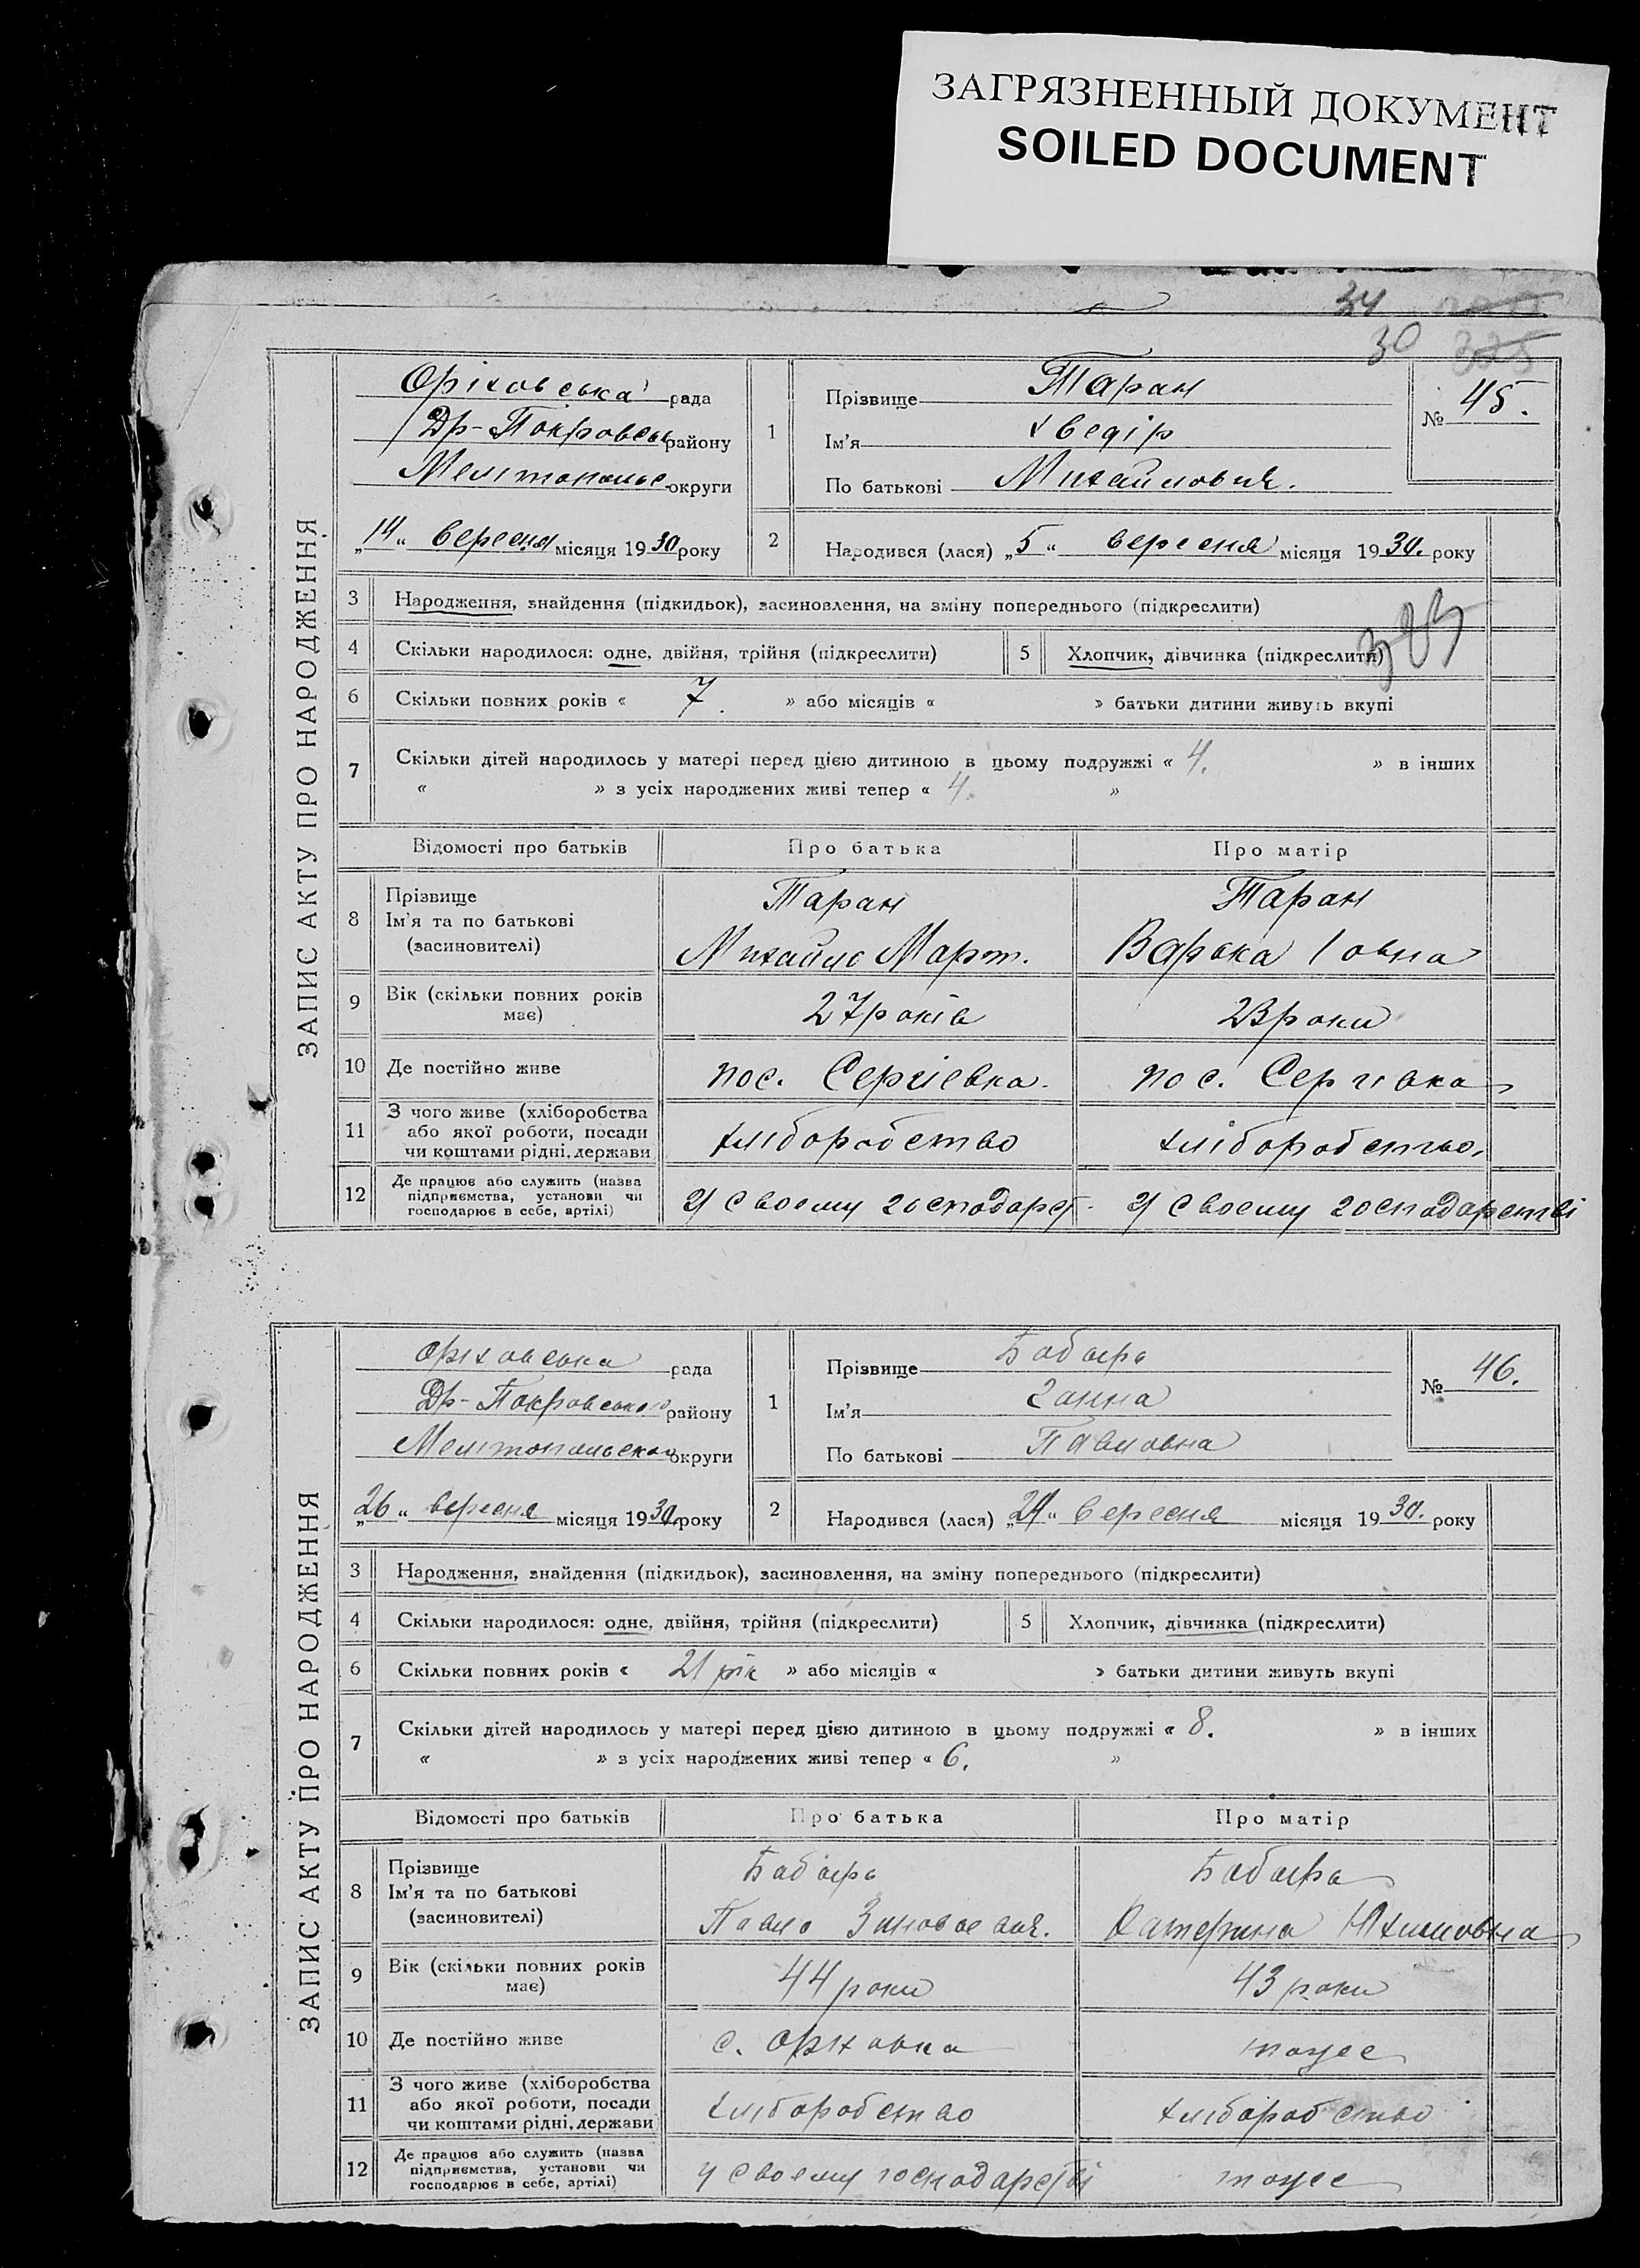 ЗАГРЯЗНЕННЫЙ ДОКУМЕНТ
SOILED DOCUMENT
34
30 325
ЗАПИС АКТУ ПРО НАРОДЖЕННЯ
Оріховська рада
Др-Покровськ району
Мелітопольс округи
„14“ вересня місяця 1930 року
1
Прізвище Таран
Ім'я Хведір
По батькові Михайлович.
№ 45.
2
Народився (лася) „5“ вересня місяця 1930. року
3 Народження, знайдення (підкидьок), засиновлення, на зміну попереднього (підкреслити)
4 Скільки народилося: одне, двійня, трійня (підкреслити) 5 Хлопчик, дівчинка (підкреслити)
6 Скільки повних років « 7. » або місяців « » батьки дитини живуть вкупі
7 Скільки дітей народилось у матері перед цією дитиною в цьому подружжі « 4. » в інших
« » з усіх народжених живі тепер « 4. »
Відомості про батьків Про батька Про матір
8 Прізвище Таран Таран
Ім'я та по батькові
(засиновителі) Михайло Март. Варька Іовна
9 Вік (скільки повних років має) 27 років 23 роки
10 Де постійно живе пос. Сергіевка. пос. Сергівка
11 З чого живе (хліборобства
або якої роботи, посади
чи коштами рідні, держави хліборобство хліборобство.
12 Де працює або служить (назва
підприємства, установи чи
господарює в себе, артілі) У своему господарст. У своему господарстві
ЗАПИС АКТУ ПРО НАРОДЖЕННЯ
Оріховська рада
Др-Покровського району
Мелітопольської округи
„26“ вересня місяця 1930. року
1
Прізвище Бабырь
Ім'я Ганна
По батькові Павловна
№ 46.
2
Народився (лася) вересня місяця 1930. року
3 Народження, знайдення (підкидьок), засиновлення, на зміну попереднього (підкреслити)
4 Скільки народилося: одне, двійня, трійня (підкреслити) 5 Хлопчик, дівчинка (підкреслити)
6 Скільки повних років « 21 рік » або місяців « » батьки дитини живуть вкупі
7 Скільки дітей народилось у матері перед цією дитиною в цьому подружжі « 8. » в інших
« » з усіх народжених живі тепер « 6. »
Відомості про батьків Про батька Про матір
8 Прізвище Бабырь Бабырь
Ім'я та по батькові
(засиновителі) Павло Зиновоевич. Катерина Юхимовна
9 Вік (скільки повних років має) 44 роки 43 роки
10 Де постійно живе с. Оріховка тоже
11 З чого живе (хліборобства
або якої роботи, посади
чи коштами рідні, держави хліборобство хліборобство
12 Де працює або служить (назва
підприємства, установи чи
господарює в себе, артілі) у своему господарстві тоже